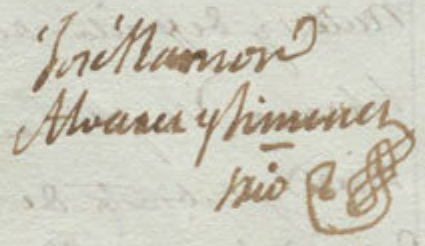 José Ramon
Alvares y Ximenes
srio